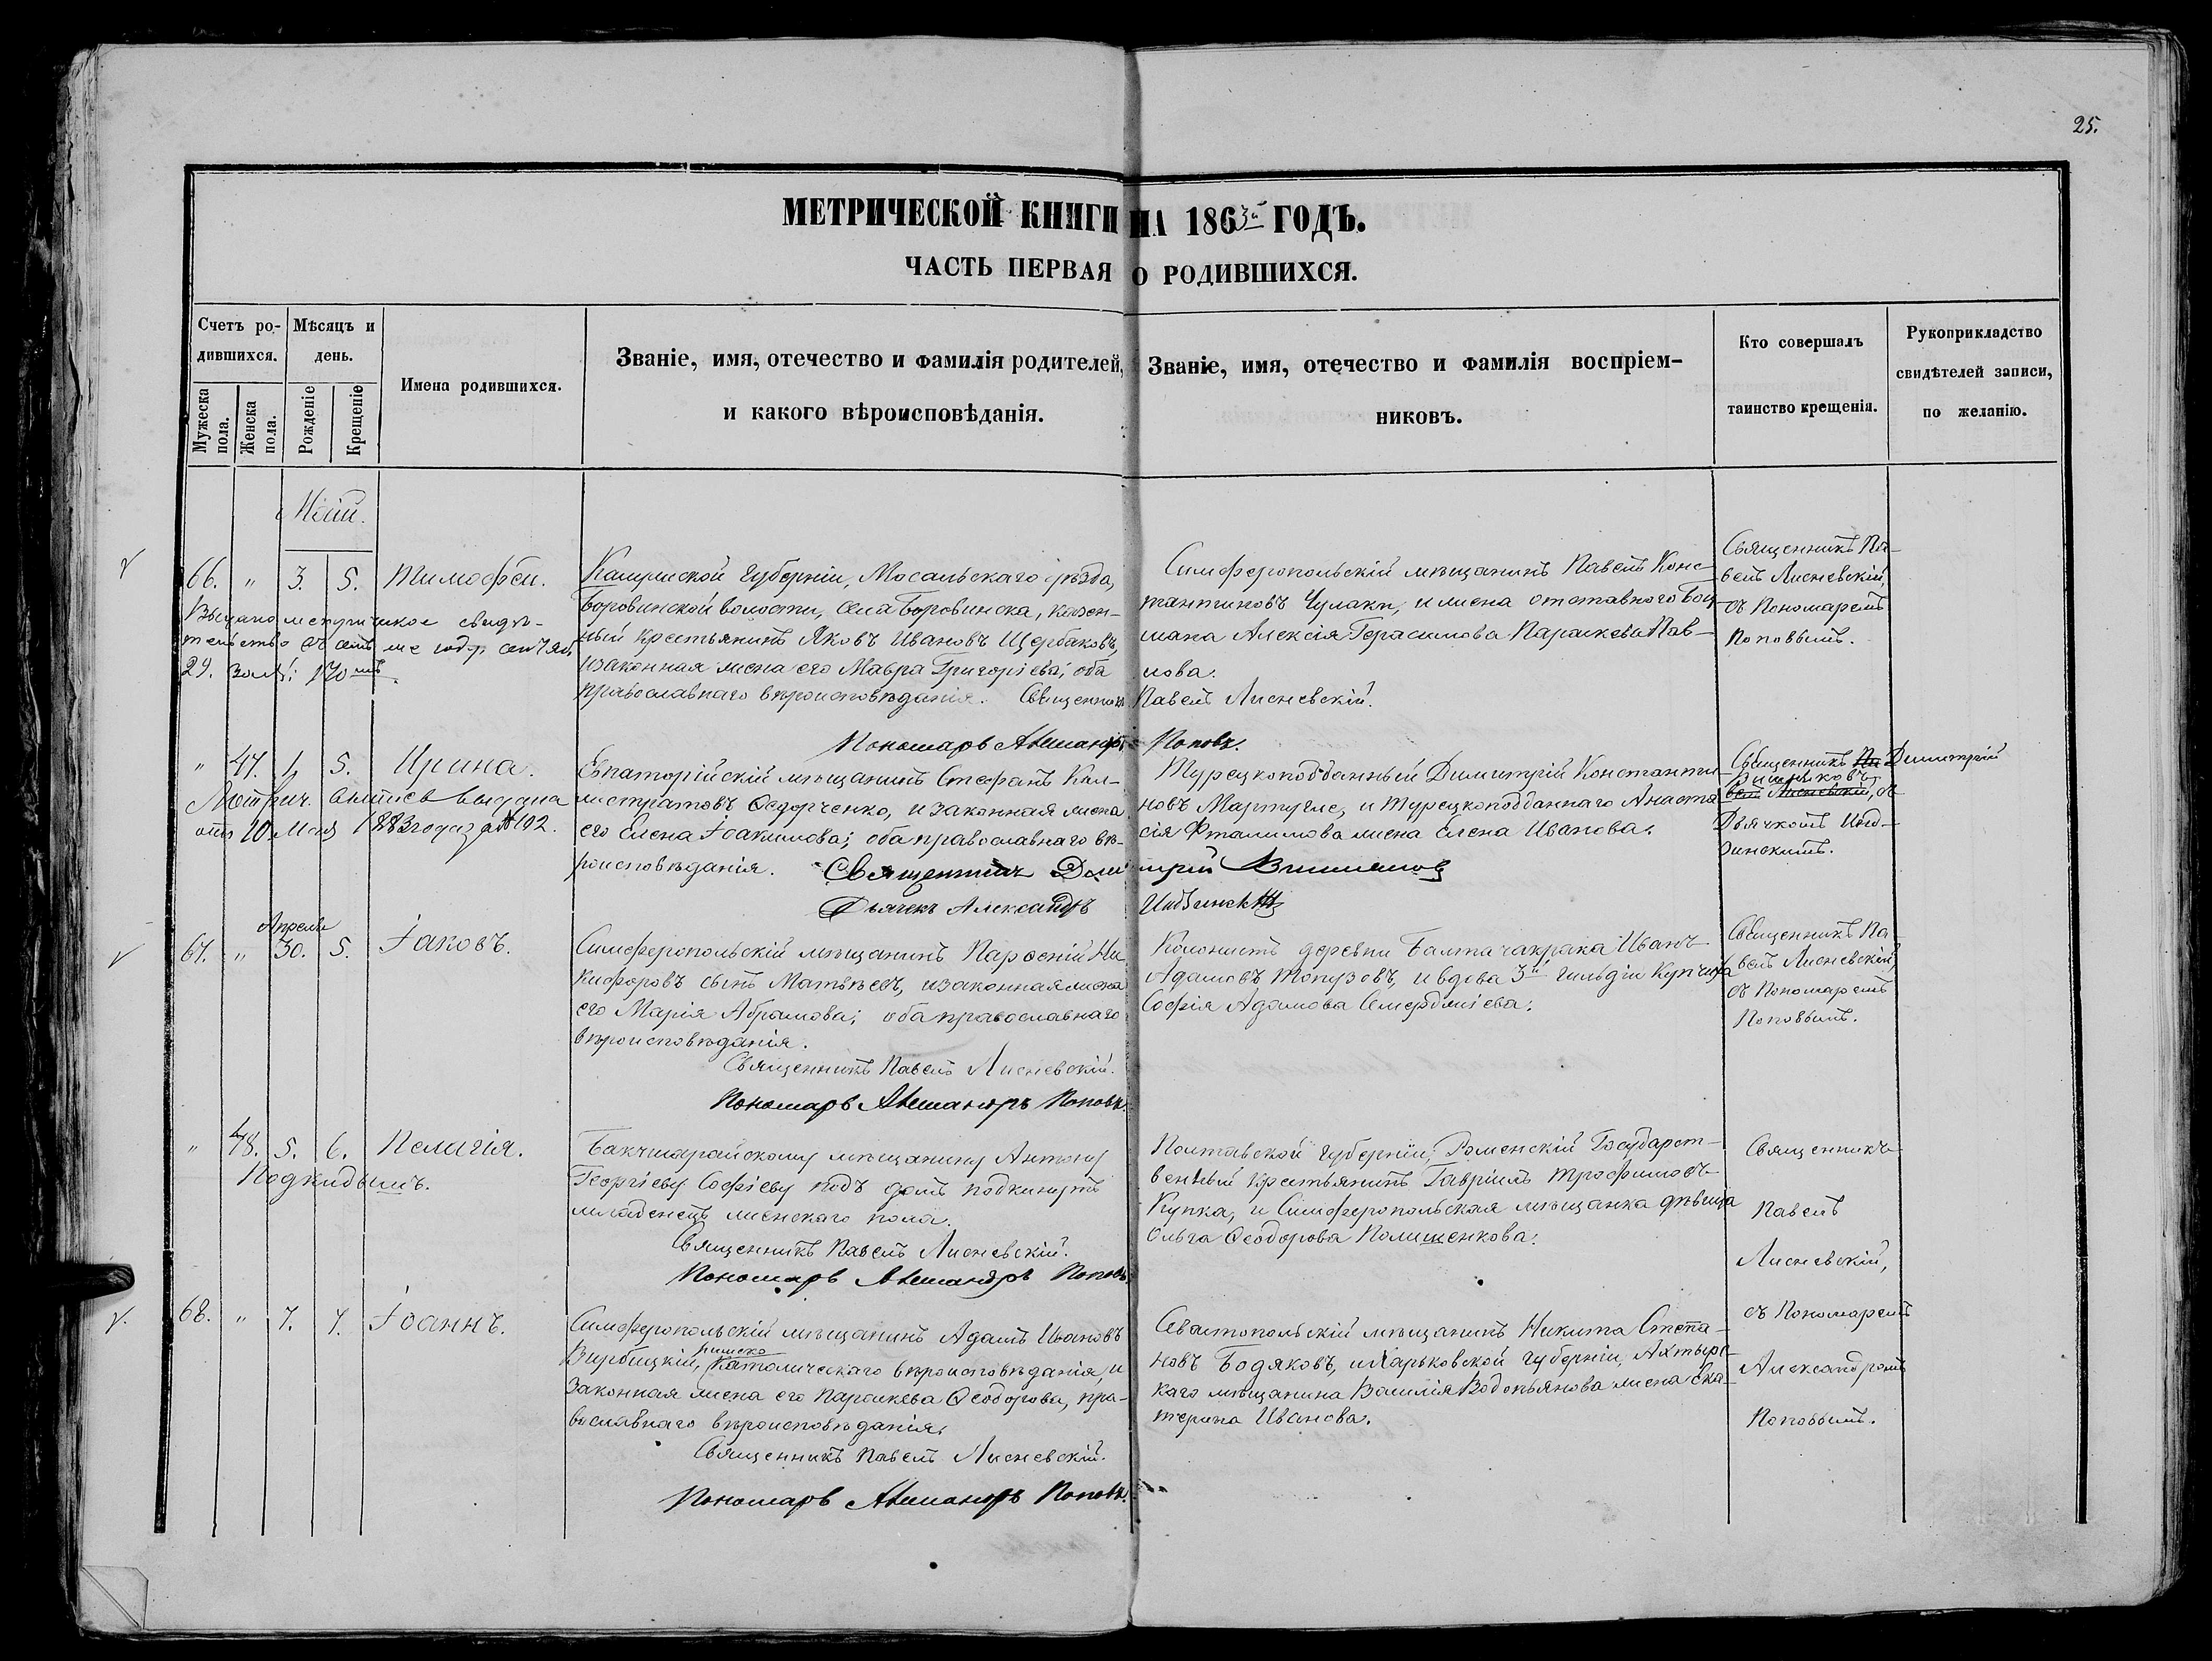 25.
МЕТРИЧЕСКОЙ КНИГИ НА 1863й ГОДЪ.
ЧАСТЬ ПЕРВАЯ О РОДИВШИХСЯ.
Счетъ ро-
дившихся.
Мужеска пола.
Женска пола.
Мѣсяцъ и
день.
Рожденіе
Крещеніе
Имена родившихся.
Званіе, имя, отечество и фамилія родителей,
и какого вѣроисповѣданія.
Званіе, имя, отечество и фамилія воспріем-
никовъ.
Кто совершалъ
таинство крещенія.
Рукоприкладство
свидѣтелей записи,
по желанію.
Маій.
66. " 3. 5. Тимофей.
Калужской Губерніи, Мосальскаго уѣзда,
Боровинской волости, села Боровинска, казен-
ный крестьянинъ Яковъ Ивановъ Щербаковъ,
и законная жена его Мавра Григоріева; оба
православнаго вѣроисповѣданія. Священникъ Павелъ Лисневскій.
Пономарь Александръ Поповъ.
Симферопольскій мѣщанинъ Павелъ Конс-
тантиновъ Чулаки, и жена отставного Боц-
мана Алексія Герасимова Параскева Пав-
лова.
Священникъ Па-
велъ Лисневскій,
съ Пономаремъ
Поповымъ.
Выдано метрическое свидѣ-
тельство
29. за №: 170мъ.
" 47. 1. 5. Ирина.
Метрич. выпись выдана
отъ 20 Мая 1883 года за № 192.
Евпаторійскій мѣщанинъ Стефанъ Кал-
листратовъ Ѳедорченко, и законная жена
его Елена Іоакимова; оба православнаго вѣ-
роисповѣданія. Священникъ Димитрій Вишняковъ
Дьячекъ Александръ Индзинскій
Турецкоподданный Димитрій Константи-
новъ Мартугле, и турецкоподданнаго Анаста-
сія Фталимова жена Елена Иванова.
Священникъ Па Димитрій
Вишняковъ
велъ Лисневскій, съ
Дьячкомъ Инд-
зинскимъ.
Апрѣля
67. " 30. 5. Іаковъ.
Симферопольскій мѣщанинъ Парѳеній Ни-
кифоровъ сынъ Матвѣевъ, и законная жена
его Марія Абрамова; оба православнаго
вѣроисповѣданія.
Священникъ Павелъ Лисневскій.
Пономарь Александръ Поповъ.
Колонистъ деревни Балтачакрака Иванъ
Адамовъ Топузовъ, и вдова 3й гильдіи Купчиха
Софія Адамова Семерджіева.
Священникъ Па-
велъ Лисневскій,
съ Пономаремъ
Поповымъ.
" 48. 5. 6. Пелагія.
Подкидышъ.
Бакчисарайскому мѣщанину Антону
Георгіеву Софіеву подъ домъ подкинутъ
младенецъ женскаго пола.
Священникъ Павелъ Лисневскій.
Пономарь Александръ Поповъ.
Полтавской Губерніи, Роменскій Государст-
венный крестьянинъ Гавріилъ Трофимовъ
Купка, и Симферопольская мѣщанка дѣвица
Ольга Ѳеодорова Полишенкова.
Священникъ
Павелъ
Лисневскій,
съ Пономаремъ
Александромъ
Поповымъ.
68. " 7. 7. Іоаннъ.
Симферопольскій мѣщанинъ Адамъ Ивановъ
римско
Вирбицкій, католическаго вѣроисповѣданія, и
законная жена его Параскева Ѳеодорова, пра-
вославнаго вѣроисповѣданія.
Священникъ Павелъ Лисневскій.
Пономарь Александръ Поповъ.
Севастопольскій мѣщанинъ Никита Степа-
новъ Бодяковъ, и Харьковской Губерніи, Ахтырс-
каго мѣщанина Василія Водопьянова жена Ека-
терина Иванова.